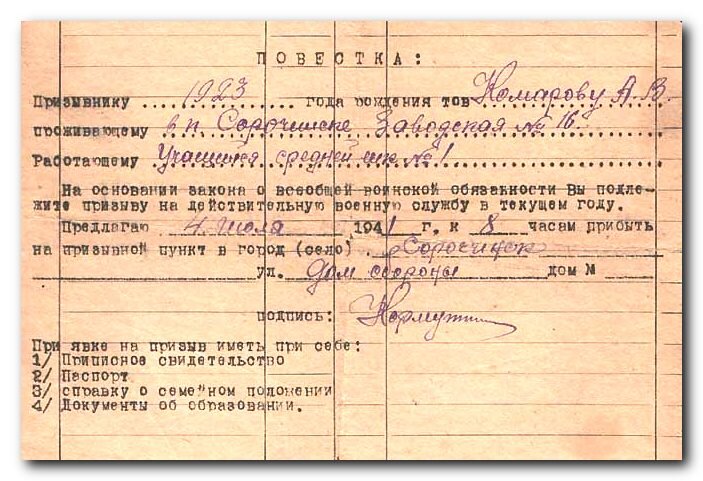 ПОВЕСТКА:
Призывнику 1923 года рождения тов Комарову А.В.
проживающему в п. Сорочинске Заводская № 16.
Работающему Учащийся средней шк №1
На основании закона о всеобщей воинской обязанности Вы подле-
жите призыву на действительную военную службу в текущем году.
Предлагаю 4 июля 1941 г. к 8 часам прибыть
на призывной пункт в город (село) Сорочинск
ул. Дом обороны дом №
подпись:
При явке на призыв иметь при себе:
1/ Приписное свидетельство
2/ Паспорт
3/ справку о семейном положении
4/ Документы об образовании.